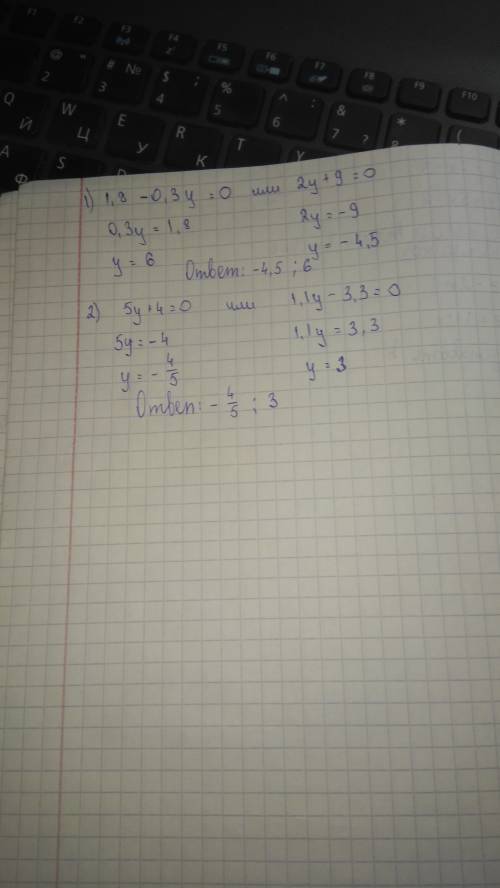 F1 F2 F3 F4 F5 F6 F7 F8 F9 F10
@ " 2 # № 3 $ ; 4 % 5 ^ : 6 & 7 ? * 8 (
Q Й W Ц E У R К T Y
A Ф S
1) 1,8 - 0,3y = 0 или 2y + 9 = 0
0,3y = 1,8 2y = -9
y = 6 y = -4,5
Ответ: -4,5 ; 6
2) 5y + 4 = 0 или 1,1y - 3,3 = 0
5y = -4 1,1y = 3,3
y = - 4/5 y = 3
Ответ: - 4/5 ; 3